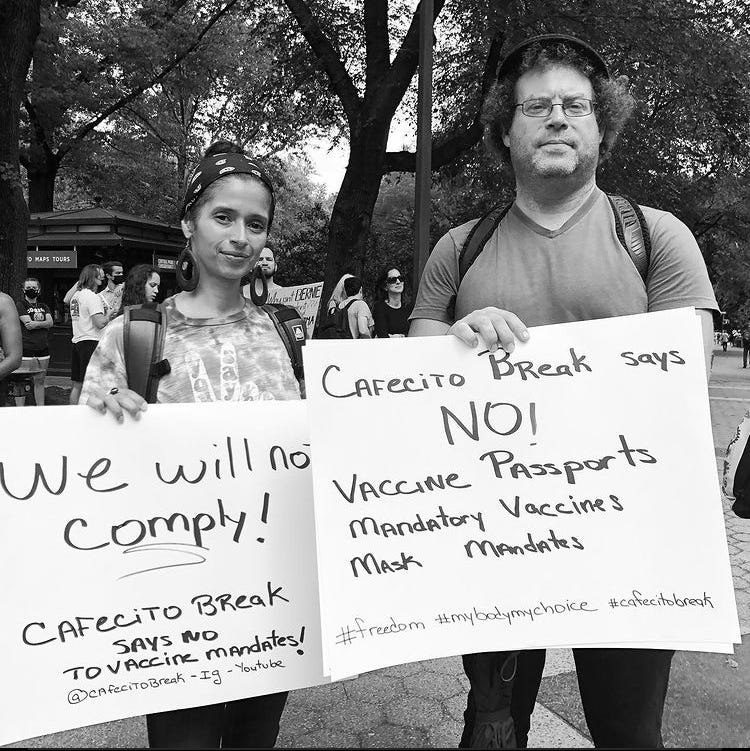 MAPS TOURS
BERNIE
We will not
Comply!
CAFECITO BREAK
SAYS NO
TO VACCINE MANDATES!
@CAFECITOBREAK - Ig - Youtube
CAFECITO BREAK says
NO!
VACCINE PASSPORTS
MANDATORY VACCINES
MASK MANDATES
#freedom #mybodymychoice #cafecitobreak